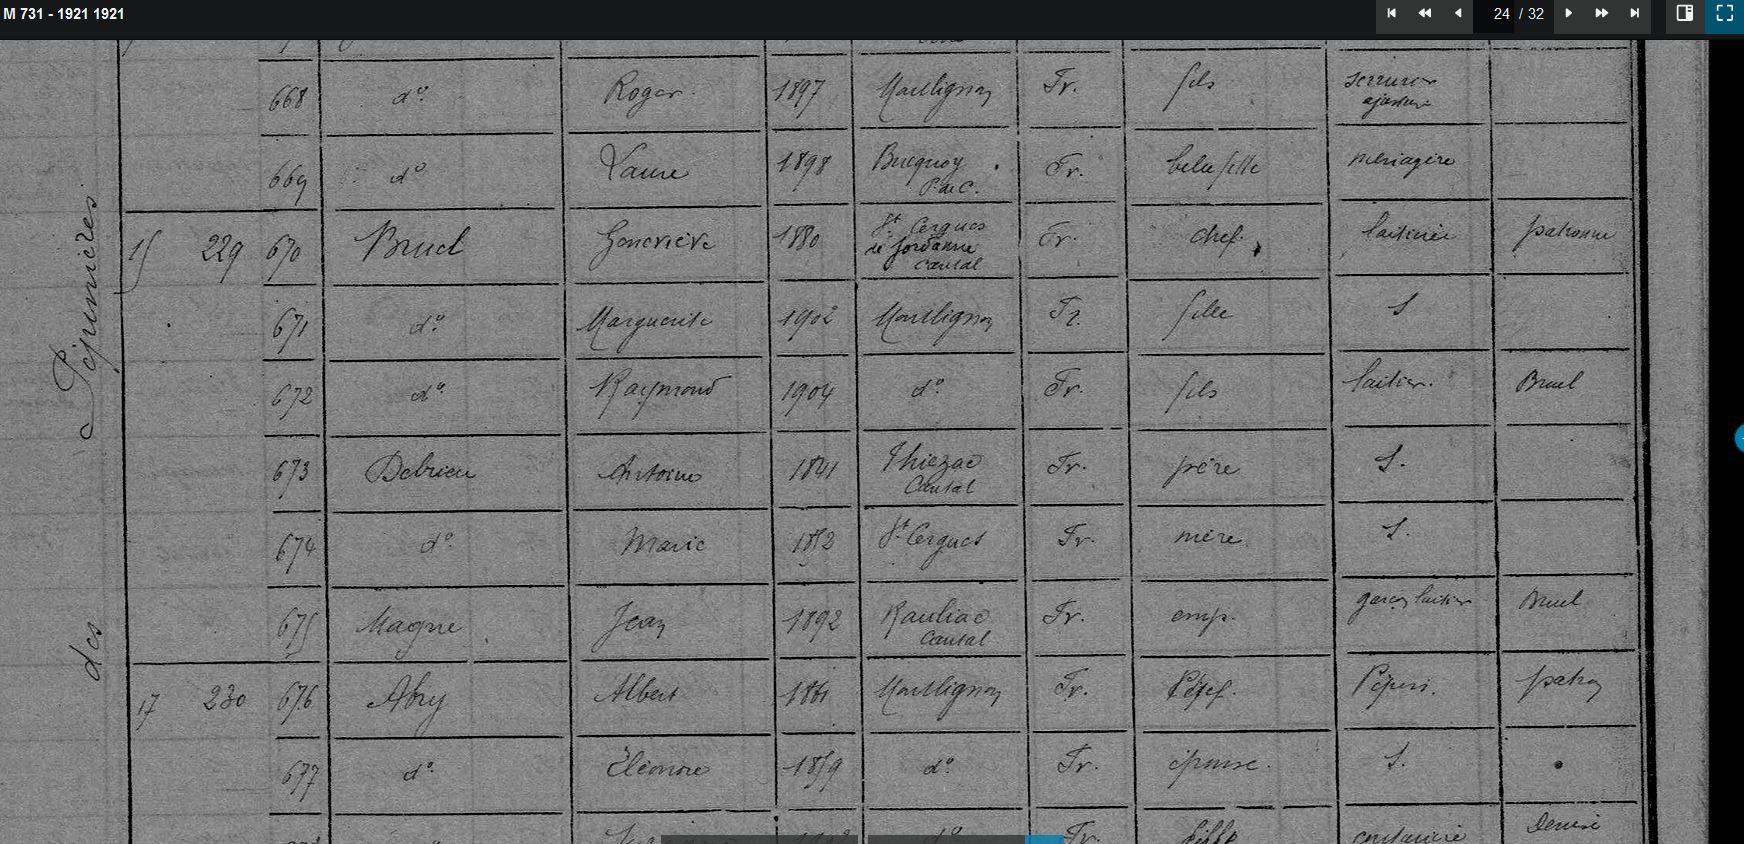 M 731 - 1921 1921
24 / 32
668 do. Roger. 1897 Montlignon Fr. fils serrurier
ajusteur
669 do Laure 1898 Bucquoy Fr. belle fille ménagère
P. de C.
15 229 670 Bruel Geneviève 1880 St Cergues Fr. chef. laitière patronne
de Jordanne
Cantal
671 do. Marguerite 1902 Montlignon Fr. fille S
672 do. Raymond 1904 do. Fr. fils laitier. Bruel
673 Delrieu Antoine 1841 Thiezac Fr. père S.
Cantal
674 do. Marie 1852 St Cergues Fr. mère S.
675 Magne Jean 1892 Rauliac Fr. emp. garçon laitier Bruel
Cantal
17 230 676 Abry Albert 1861 Montlignon Fr. Chef. Pépini. patron
677 do. Eléonore 1859 do. Fr. épouse. S.
do. Fr. fille couturière Denise
des Pépinières